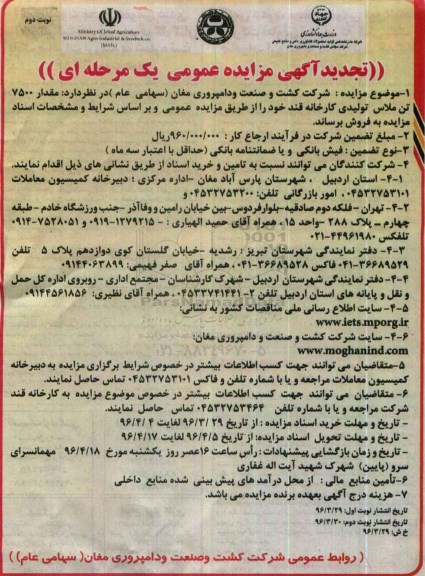 نوبت دوم
Ministry of Jihad Agriculture
MOGHAN Agro-Industrial & livestock co.
((تجدیدآگهی مزایده عمومی یک مرحله ای))
۱-موضوع مزایده : شرکت کشت و صنعت ودامپروری مغان (سهامی عام) در نظردارد: مقدار ۷۵۰۰
تن ملاس تولیدی کارخانه قند خود را از طریق مزایده عمومی و بر اساس شرایط و مشخصات اسناد
مزایده به فروش برساند.
۲-مبلغ تضمین شرکت در فرآیند ارجاع کار : ۹۶۰/۰۰۰/۰۰۰ریال
۳-نوع تضمین : فیش بانکی و یا ضمانتنامه بانکی (حداقل با اعتبار سه ماه )
۴- شرکت کنندگان می توانند نسبت به تامین و خرید اسناد از طریق نشانی های ذیل اقدام نمایند.
۴-۱- استان اردبیل ، شهرستان پارس آباد مغان -اداره مرکزی ؛ دبیرخانه کمیسیون معاملات
۰۴۵۳۲۷۵۳۱۰۱ ، امور بازرگانی تلفن: ۰۴۵۳۲۷۵۳۲۰۰ و
۴-۲- تهران -فلکه دوم صادقیه -بلوارفردوس -بین خیابان رامین و وفاآذر -جنب ورزشگاه خادم -طبقه
چهارم - پلاک ۲۸۸ -واحد ۱۵ ، همراه آقای حمید الهیاری : ۰۹۱۹-۱۲۷۹۲۱۵ و ۷۵۲۸۰۵۱-۰۹۱۴
تلفکس ۴۴۹۶۱۹۸۰-۰۲۱
۴-۳- دفتر نمایندگی شهرستان تبریز : رشدیه -خیابان گلستان کوی دوازدهم پلاک ۵ تلفن
۳۶۶۸۹۵۲۹-۰۴۱ فاکس ۳۶۶۸۹۵۲۸-۰۴۱، همراه آقای صفر فهیمی: ۰۹۱۴۴۰۶۳۸۹۹
۴-۴- دفتر نمایندگی شهرستان اردبیل - شهرک کارشناسان - مجتمع اداری - روبروی اداره کل حمل
و نقل و پایانه های استان اردبیل تلفن ۲- ۰۴۵۳۳۷۴۱۴۴۱، همراه آقای نظیری: ۰۹۱۴۴۵۶۱۸۵۶
۴-۵- سایت اطلاع رسانی ملی مناقصات کشور به نشانی:
www.iets.mporg.ir
۴-۶- سایت شرکت کشت و صنعت و دامپروری مغان:
www.moghanind.com
۵-متقاضیان می توانند جهت کسب اطلاعات بیشتر در خصوص شرایط برگزاری مزایده به دبیرخانه
کمیسیون معاملات مراجعه و یا با شماره تلفن و فاکس ۰۴۵۳۲۷۵۳۱۰۱ تماس حاصل نمایند.
۶-متقاضیان می توانند جهت کسب اطلاعات بیشتر در خصوص موضوع مزایده به کارخانه قند
شرکت مراجعه و یا با شماره تلفن ۰۴۵۳۲۷۵۳۴۶۴ تماس حاصل نمایند.
- تاریخ و مهلت خرید اسناد مزایده : از تاریخ ۹۶/۳/۲۹ لغایت ۹۶/۴/۴
- تاریخ و مهلت تحویل اسناد مزایده: از تاریخ ۹۶/۴/۵ لغایت ۹۶/۴/۱۷
- تاریخ و زمان بازگشایی پیشنهادات : رأس ساعت ۱۶عصر روز یکشنبه مورخ ۹۶/۴/۱۸ مهمانسرای
سرو (پایین) شهرک شهید آیت اله غفاری
۶-تأمین منابع مالی : از محل درآمد های پیش بینی شده منابع داخلی
۷- هزینه درج آگهی بعهده برنده مزایده می باشد.
تاریخ انتشار نوبت اول: ۹۶/۳/۲۹
تاریخ انتشار نوبت دوم: ۹۶/۳/۳۰
خ ش: ۹۶/۳/۲۹
( روابط عمومی شرکت کشت وصنعت ودامپروری مغان( سهامی عام))